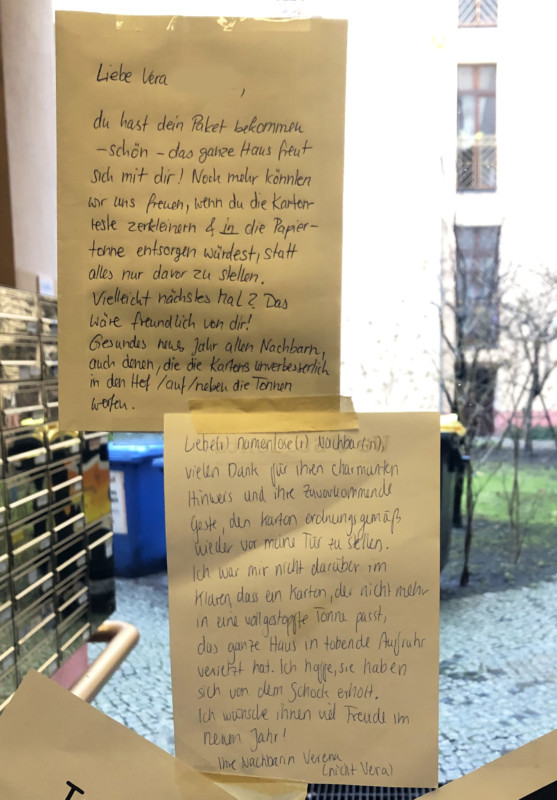 Liebe Vera
,
du hast dein Paket bekommen
- schön - das ganze Haus freut
sich mit dir! Noch mehr könnten
wir uns freuen, wenn du die Karton-
reste zerkleinern & in die Papier-
tonne entsorgen würdest, statt
alles nur davor zu stellen.
Vielleicht nächstes Mal? Das
wäre freundlich von dir!
Gesundes neues Jahr allen Nachbarn,
auch denen, die die Kartons unverbesserlich
in den Hof /auf/neben die Tonnen
werfen.
Liebe(r) namenlose(r) Nachbar(in),
vielen Dank für ihren charmanten
Hinweis und ihre zuvorkommende
Geste, den Karton ordnungsgemäß
wieder vor meine Tür zu stellen.
Ich war mir nicht darüber im
Klaren, dass ein Karton, der nicht mehr
in eine vollgestopfte Tonne passt,
das ganze Haus in tobende Aufruhr
versetzt hat. Ich hoffe, sie haben
sich von dem Schock erholt.
Ich wünsche ihnen viel Freude im
neuen Jahr!
Ihre Nachbarin Verena
(nicht Vera)